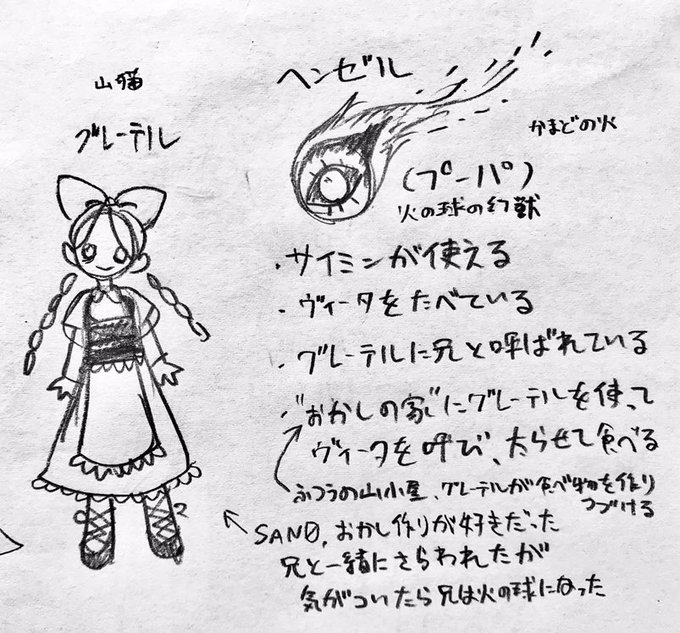 山猫
グレーテル
ヘンゼル
かまどの火
(プーパ)
火の球の幻獣
・サイミンが使える
・ヴィータをたべている
・グレーテルに兄と呼ばれている
・"おかしの家"にグレーテルを使って
ヴィータを呼び、太らせて食べる
ふつうの山小屋、グレーテルが食べ物を作り
つづける
SAN0,おかし作りが好きだった
兄と一緒にさらわれたが
気がついたら兄は火の球になった